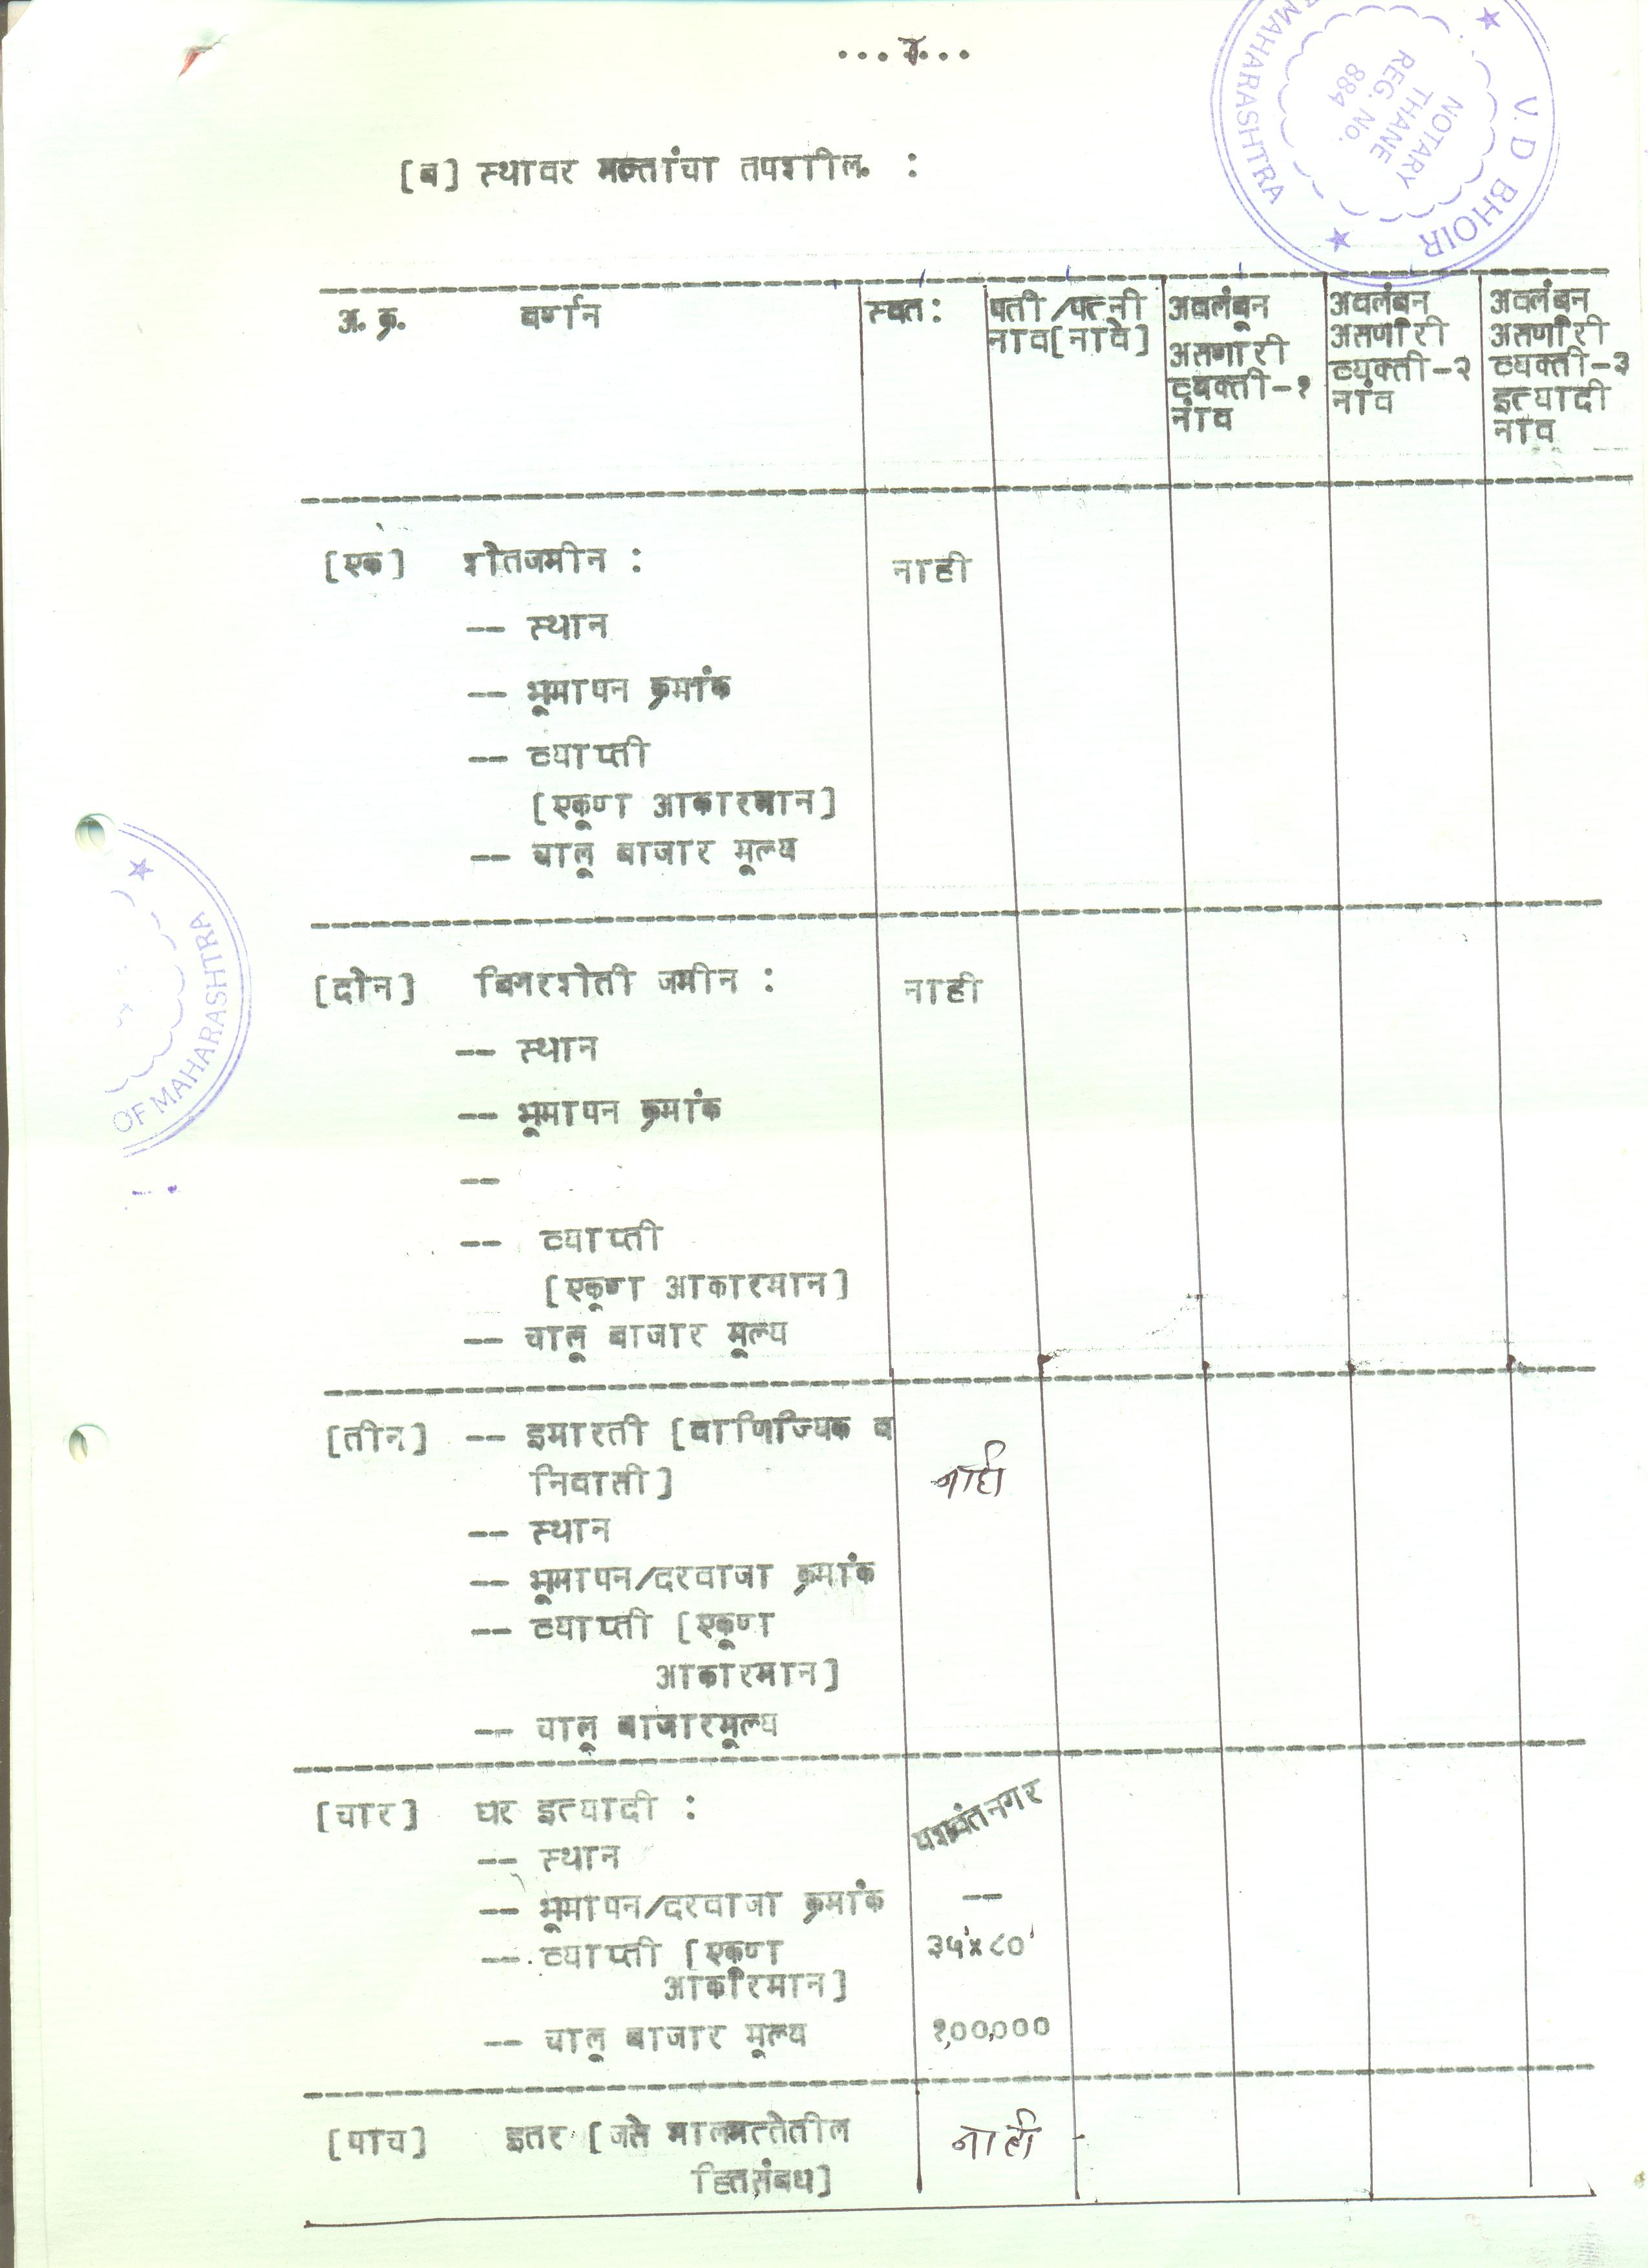 [ब] स्थावर मत्तांचा तपशील :
V. D BHOIR
NOTARY
THANE
REG. No.
884
MAHARASHTRA
अ. क्र. वर्णन स्वत: पती/पत्नी अवलंबून अवलंबन अवलंबन
नाव[नावे] असणारी असणारी असणारी
व्यक्ती-१ व्यक्ती-२ व्यक्ती-३
नांव नांव इत्यादी
नांव
[एक] शेतजमीन : नाही
-- स्थान
-- भूमापन क्रमांक
-- व्याप्ती
[एकूण आकारमान]
-- चालू बाजार मूल्य
OF MAHARASHTRA
[दोन] बिगरशेती जमीन : नाही
-- स्थान
-- भूमापन क्रमांक
--
-- व्याप्ती
[एकूण आकारमान]
-- चालू बाजार मूल्य
[तीन] -- इमारती [वाणिज्यिक व
निवासी] नाही
-- स्थान
-- भूमापन/दरवाजा क्रमांक
-- व्याप्ती [एकूण
आकारमान]
-- चालू बाजारमूल्य
[चार] घर इत्यादी : यशवंतनगर
-- स्थान
-- भूमापन/दरवाजा क्रमांक --
-- व्याप्ती [एकूण ३५'x८०'
आकारमान]
-- चालू बाजार मूल्य १,००,०००
[पाच] इतर [जसे मालमत्तेतील नाही
हितसंबंध]